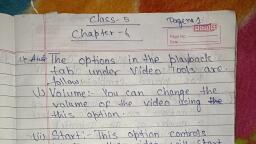 Class - 5
Page no 1
Chapter - 4
Page No.
Date
1. Ans The options in the playback
tab under Video Tools are
follow:-
i) Volume:- You can change the
volume of the video using the
this option.
ii) Start:- This option controls